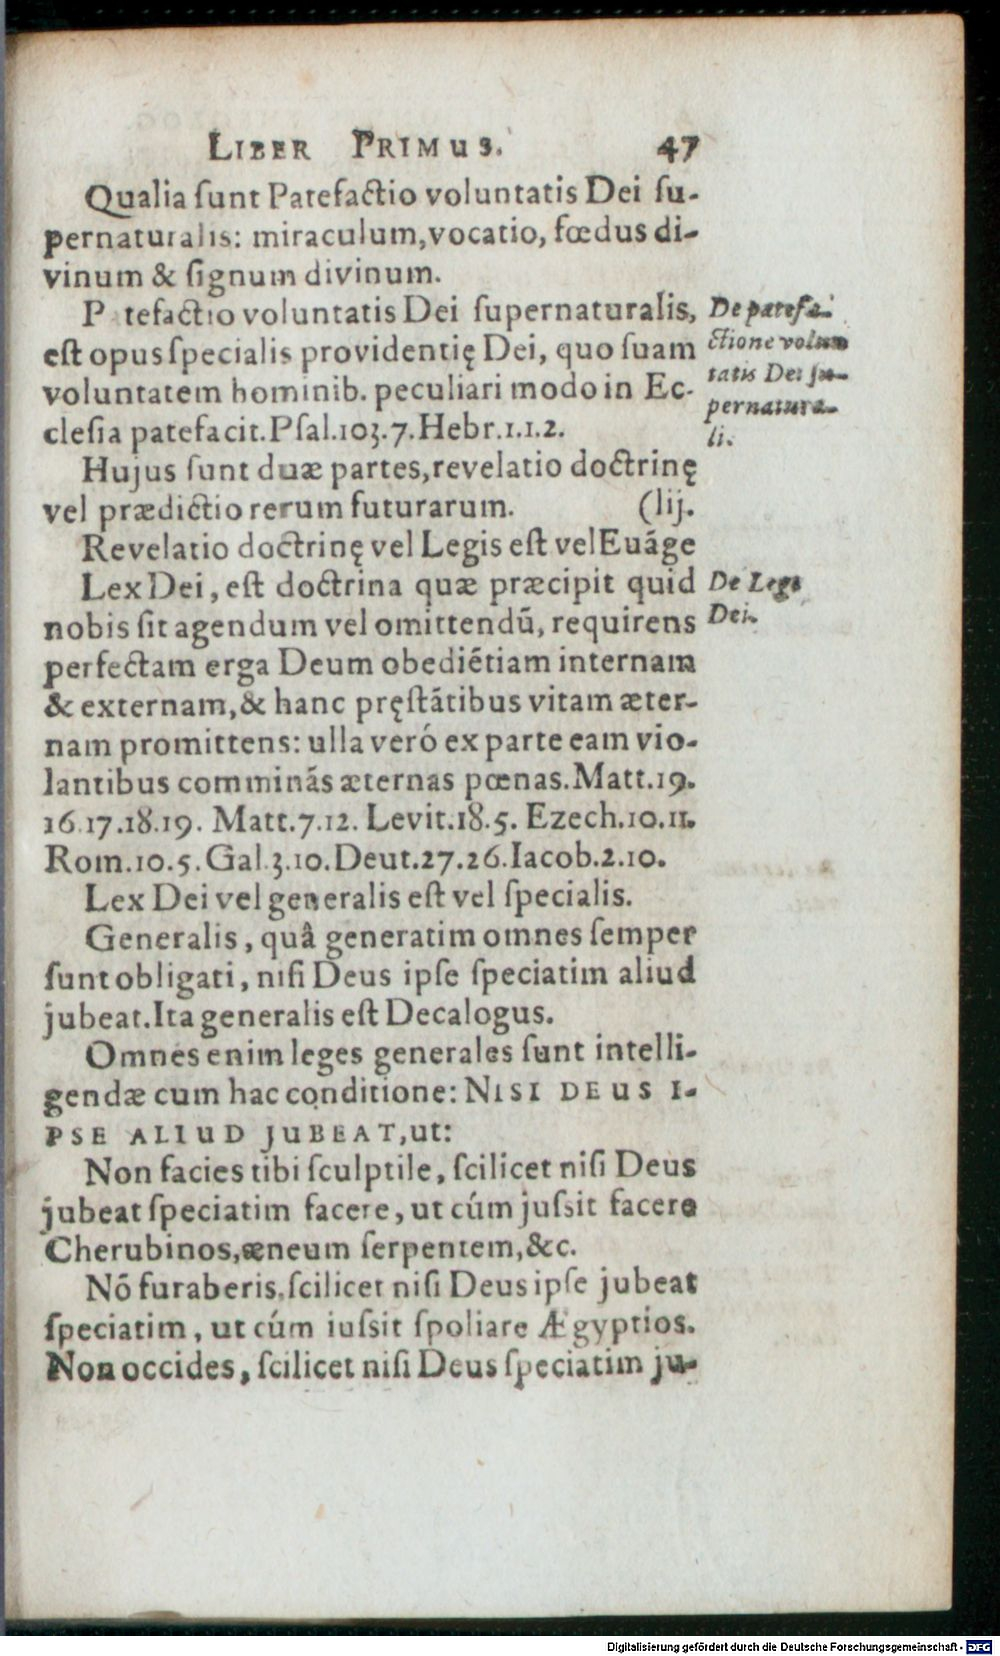 LIBER PRIMUS. 47
Qualia ſunt Patefactio voluntatis Dei ſu-
pernaturalis: miraculum, vocatio, fœdus di-
vinum & ſignum divinum.
Patefactio voluntatis Dei ſupernaturalis,
eſt opus ſpecialis providentię Dei, quo ſuam
voluntatem hominib. peculiari modo in Ec-
cleſia patefacit. Pſal. 103. 7. Hebr. 1. 1. 2.
De patefa-
ctione volun
tatis Dei ſu-
pernatura-
li.
Hujus ſunt duæ partes, revelatio doctrinę
vel prædictio rerum futurarum. (lij.
Revelatio doctrinę vel Legis eſt vel Euãge
Lex Dei, eſt doctrina quæ præcipit quid
nobis ſit agendum vel omittendũ, requirens
perfectam erga Deum obediẽtiam internam
& externam, & hanc pręſtãtibus vitam æter-
nam promittens: ulla veró ex parte eam vio-
lantibus comminãs æternas pœnas. Matt. 19.
16. 17. 18. 19. Matt. 7. 12. Levit. 18. 5. Ezech. 10. 11.
Rom. 10. 5. Gal. 3. 10. Deut. 27. 26. Iacob. 2. 10.
De Lege
Dei.
Lex Dei vel generalis eſt vel ſpecialis.
Generalis, quâ generatim omnes ſemper
ſunt obligati, niſi Deus ipſe ſpeciatim aliud
jubeat. Ita generalis eſt Decalogus.
Omnes enim leges generales ſunt intelli-
gendæ cum hac conditione: NISI DEUS I-
PSE ALIUD JUBEAT, ut:
Non facies tibi ſculptile, ſcilicet niſi Deus
jubeat ſpeciatim facere, ut cúm juſsit facere
Cherubinos, æneum ſerpentem, &c.
Nõ furaberis, ſcilicet niſi Deus ipſe jubeat
ſpeciatim, ut cúm iuſsit ſpoliare Ægyptios.
Non occides, ſcilicet niſi Deus ſpeciatim ju-
Digitalisierung gefördert durch die Deutsche Forschungsgemeinschaft - DFG